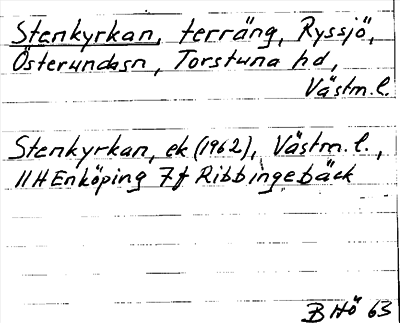 Stenkyrkan, terräng, Ryssjö,
Österundasn, Torstuna hd,
Västm.l.
Stenkyrkan, ek (1962), Västm.l.,
11H Enköping 7f Ribbingebäck
B Hö 63